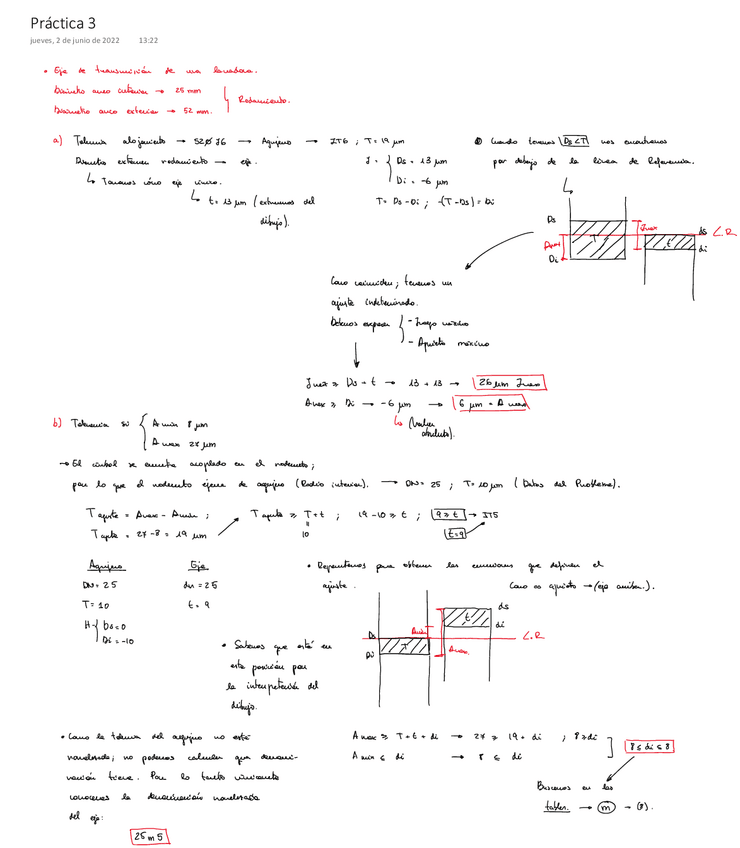 Práctica 3
jueves, 2 de junio de 2022 13:22
• Eje de transmisión de una lavadora.
Diámetro anco interior → 25 mm
Diámetro anco exterior → 52 mm.
Rodamiento.
a) Tolerancia alojamiento → 52Ø J6 → Agujero → IT6 ; T = 19 μm
Diámetro exterior rodamiento → eje.
↳ Tenemos como eje
↳ t = 13 μm (extremos del
dibujo).
J = { Ds = 13 μm
Di = -6 μm
T = Ds - Di ; -(T - Ds) = Di
Cuando tenemos Ds < T nos encontramos
por debajo de la línea de Referencia.
Ds
Di
T
Jmax
Amax
t
ds
di
L.R
Como coinciden; tenemos un
ajuste indeterminado.
Debemos expresar { - Juego máximo
- Aprieto máximo
Jmax ≥ Ds + t → 13 + 13 → 26 μm Jmax
Amax ≥ Di → -6 μm → 6 μm = Amax
↳ (valor
absoluto).
b) Tolerancia si { A min 8 μm
A max 27 μm
→ El árbol se encuentra acoplado en el rodamiento;
por lo que el rodamiento ejerce de agujero (Radio interior). → DN = 25 ; T = 10 μm (Datos del Problema).
Tajuste = Amax - Amin ;
Tajuste = 27 - 8 = 19 μm
Tajuste ≥ T + t ; 19 - 10 ≥ t ; 9 ≥ t → IT5
10
t = 9
Agujero
DN = 25
T = 10
H { Ds = 0
Di = -10
Eje
dn = 25
t = 9
• Representamos para obtener las ecuaciones que definen el
ajuste.
Como es aprieto → (eje arriba).
Ds
Di
T
Amin
Amax
t
ds
di
L.R
• Sabemos que está en
esta posición por
la interpretación del
dibujo.
• Como la tolerancia del agujero no está
normalizada; no podemos calcular que denomi-
nación tiene. Por lo tanto únicamente
conocemos la denominación normalizada
del eje:
25 m 5
A max ≥ T + t + di → 27 ≥ 19 + di ; 8 ≥ di
A min ≤ di → 8 ≤ di
8 ≤ di ≤ 8
Buscamos en las
tablas. → m → (8).